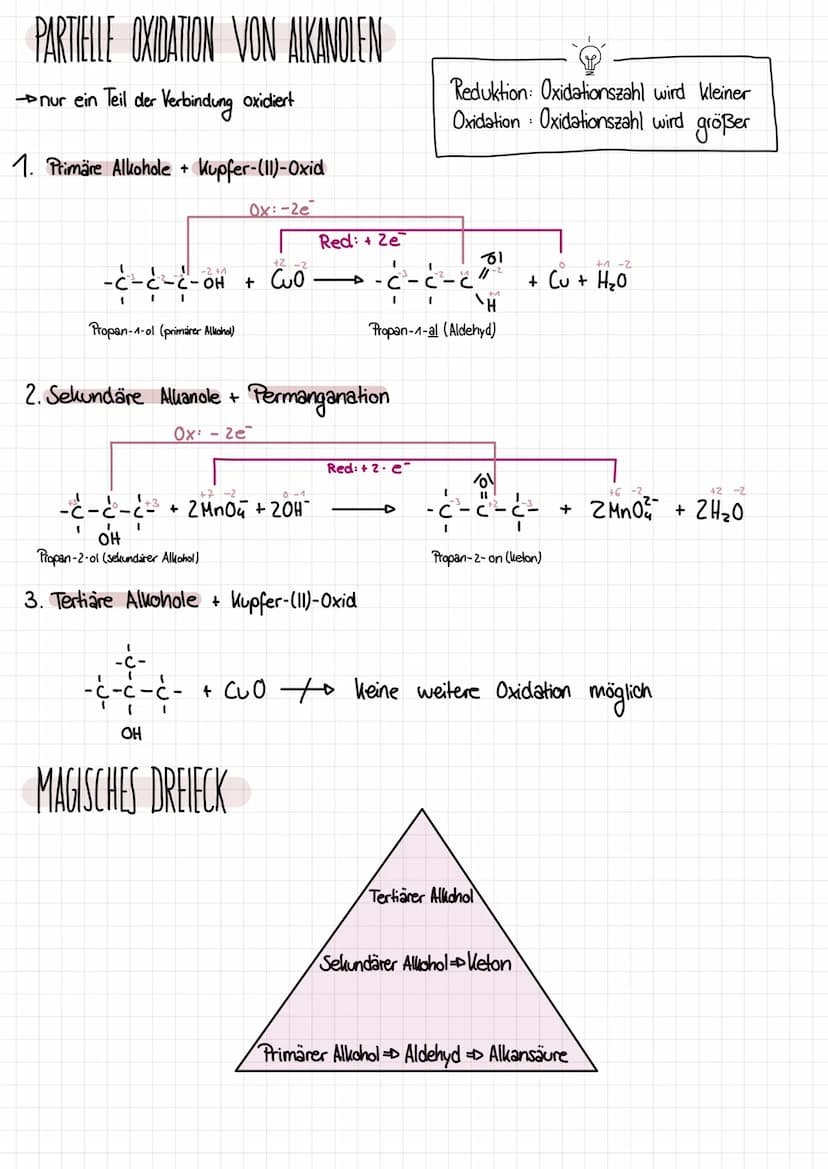 PARTIELLE OXIDATION VON ALKANOLEN
→ nur ein Teil der Verbindung oxidiert
Reduktion: Oxidationszahl wird kleiner
Oxidation : Oxidationszahl wird größer
1. Primäre Alkohole + Kupfer-(II)-Oxid
Ox: -2e⁻
Red: + 2e⁻
-C-C-C-OH + CuO → -C-C-C + Cu + H₂O
O
H
Propan-1-ol (primärer Alkohol)
Propan-1-al (Aldehyd)
2. Sekundäre Alkanole + Permanganation
Ox: - 2e⁻
Red: + 2 · e⁻
-C-C-C- + 2MnO₄⁻ + 2OH⁻ → -C-C-C- + 2MnO₄²⁻ + 2H₂O
OH
O
Propan-2-ol (sekundärer Alkohol)
Propan-2-on (Keton)
3. Tertiäre Alkohole + Kupfer-(II)-Oxid
-C-
-C-C-C- + CuO ↛ keine weitere Oxidation möglich
OH
MAGISCHES DREIECK
Tertiärer Alkohol
Sekundärer Alkohol ⇒ Keton
Primärer Alkohol ⇒ Aldehyd ⇒ Alkansäure